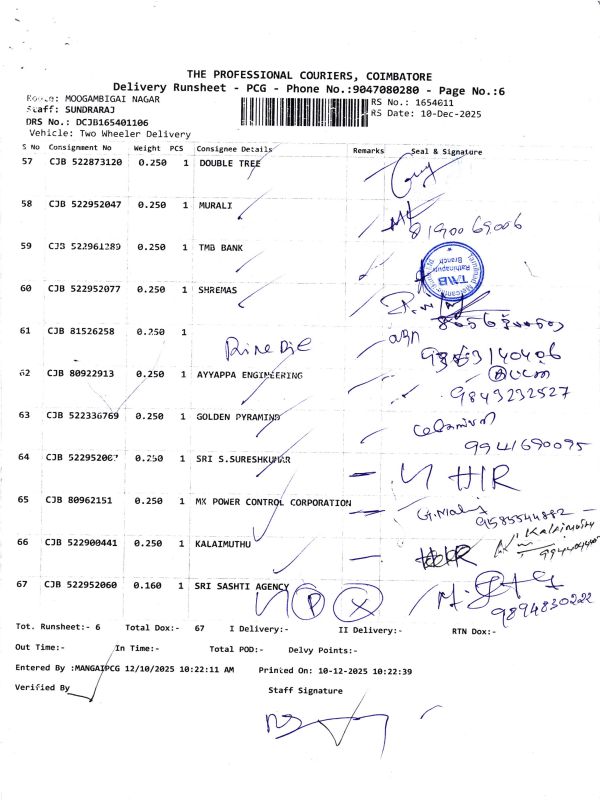 THE PROFESSIONAL COURIERS, COIMBATORE
Delivery Runsheet - PCG - Phone No.:9047080280 - Page No.:6
Route: MOOGAMBIGAI NAGAR
Staff: SUNDRARAJ
DRS No.: DCJB165401106
Vehicle: Two Wheeler Delivery
RS No.: 1654011
RS Date: 10-Dec-2025
S No Consignment No Weight PCS Consignee Details Remarks Seal & Signature
57 CJB 522873120 0.250 1 DOUBLE TREE
58 CJB 522952047 0.250 1 MURALI
8190069006
59 CJB 522961289 0.250 1 TMB BANK
TMB
Branch
60 CJB 522952077 0.250 1 SHREMAS
61 CJB 81526258 0.250 1
62 CJB 80922913 0.250 1 AYYAPPA ENGINEERING
9843232527
63 CJB 522336769 0.250 1 GOLDEN PYRAMIND
9941690095
64 CJB 522952067 0.250 1 SRI S.SURESHKUMAR
65 CJB 80962151 0.250 1 MX POWER CONTROL CORPORATION
9585544882
66 CJB 522900441 0.250 1 KALAIMUTHU
Kalaimuthu
67 CJB 522952060 0.160 1 SRI SASHTI AGENCY
P X
9894830222
Tot. Runsheet:- 6 Total Dox:- 67 I Delivery:- II Delivery:- RTN Dox:-
Out Time:- In Time:- Total POD:- Delvy Points:-
Entered By :MANGAIPCG 12/10/2025 10:22:11 AM Printed On: 10-12-2025 10:22:39
Verified By Staff Signature